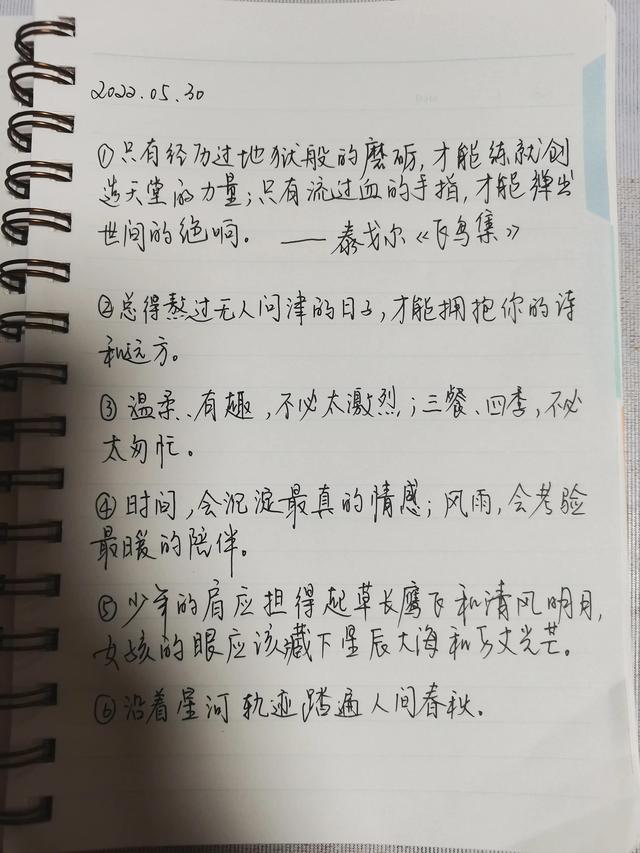 2022.05.30
①只有经历过地狱般的磨砺,才能练就创
造天堂的力量;只有流过血的手指,才能弹出
世间的绝响。 ——泰戈尔《飞鸟集》
②总得熬过无人问津的日子,才能拥抱你的诗
和远方。
③温柔、有趣,不必太激烈;三餐、四季,不必
太匆忙。
④时间,会沉淀最真的情感;风雨,会考验
最暖的陪伴。
⑤少年的肩应担得起草长鹰飞和清风明月,
女孩的眼应该藏下星辰大海和万丈光芒。
⑥沿着星河轨迹踏遍人间春秋。